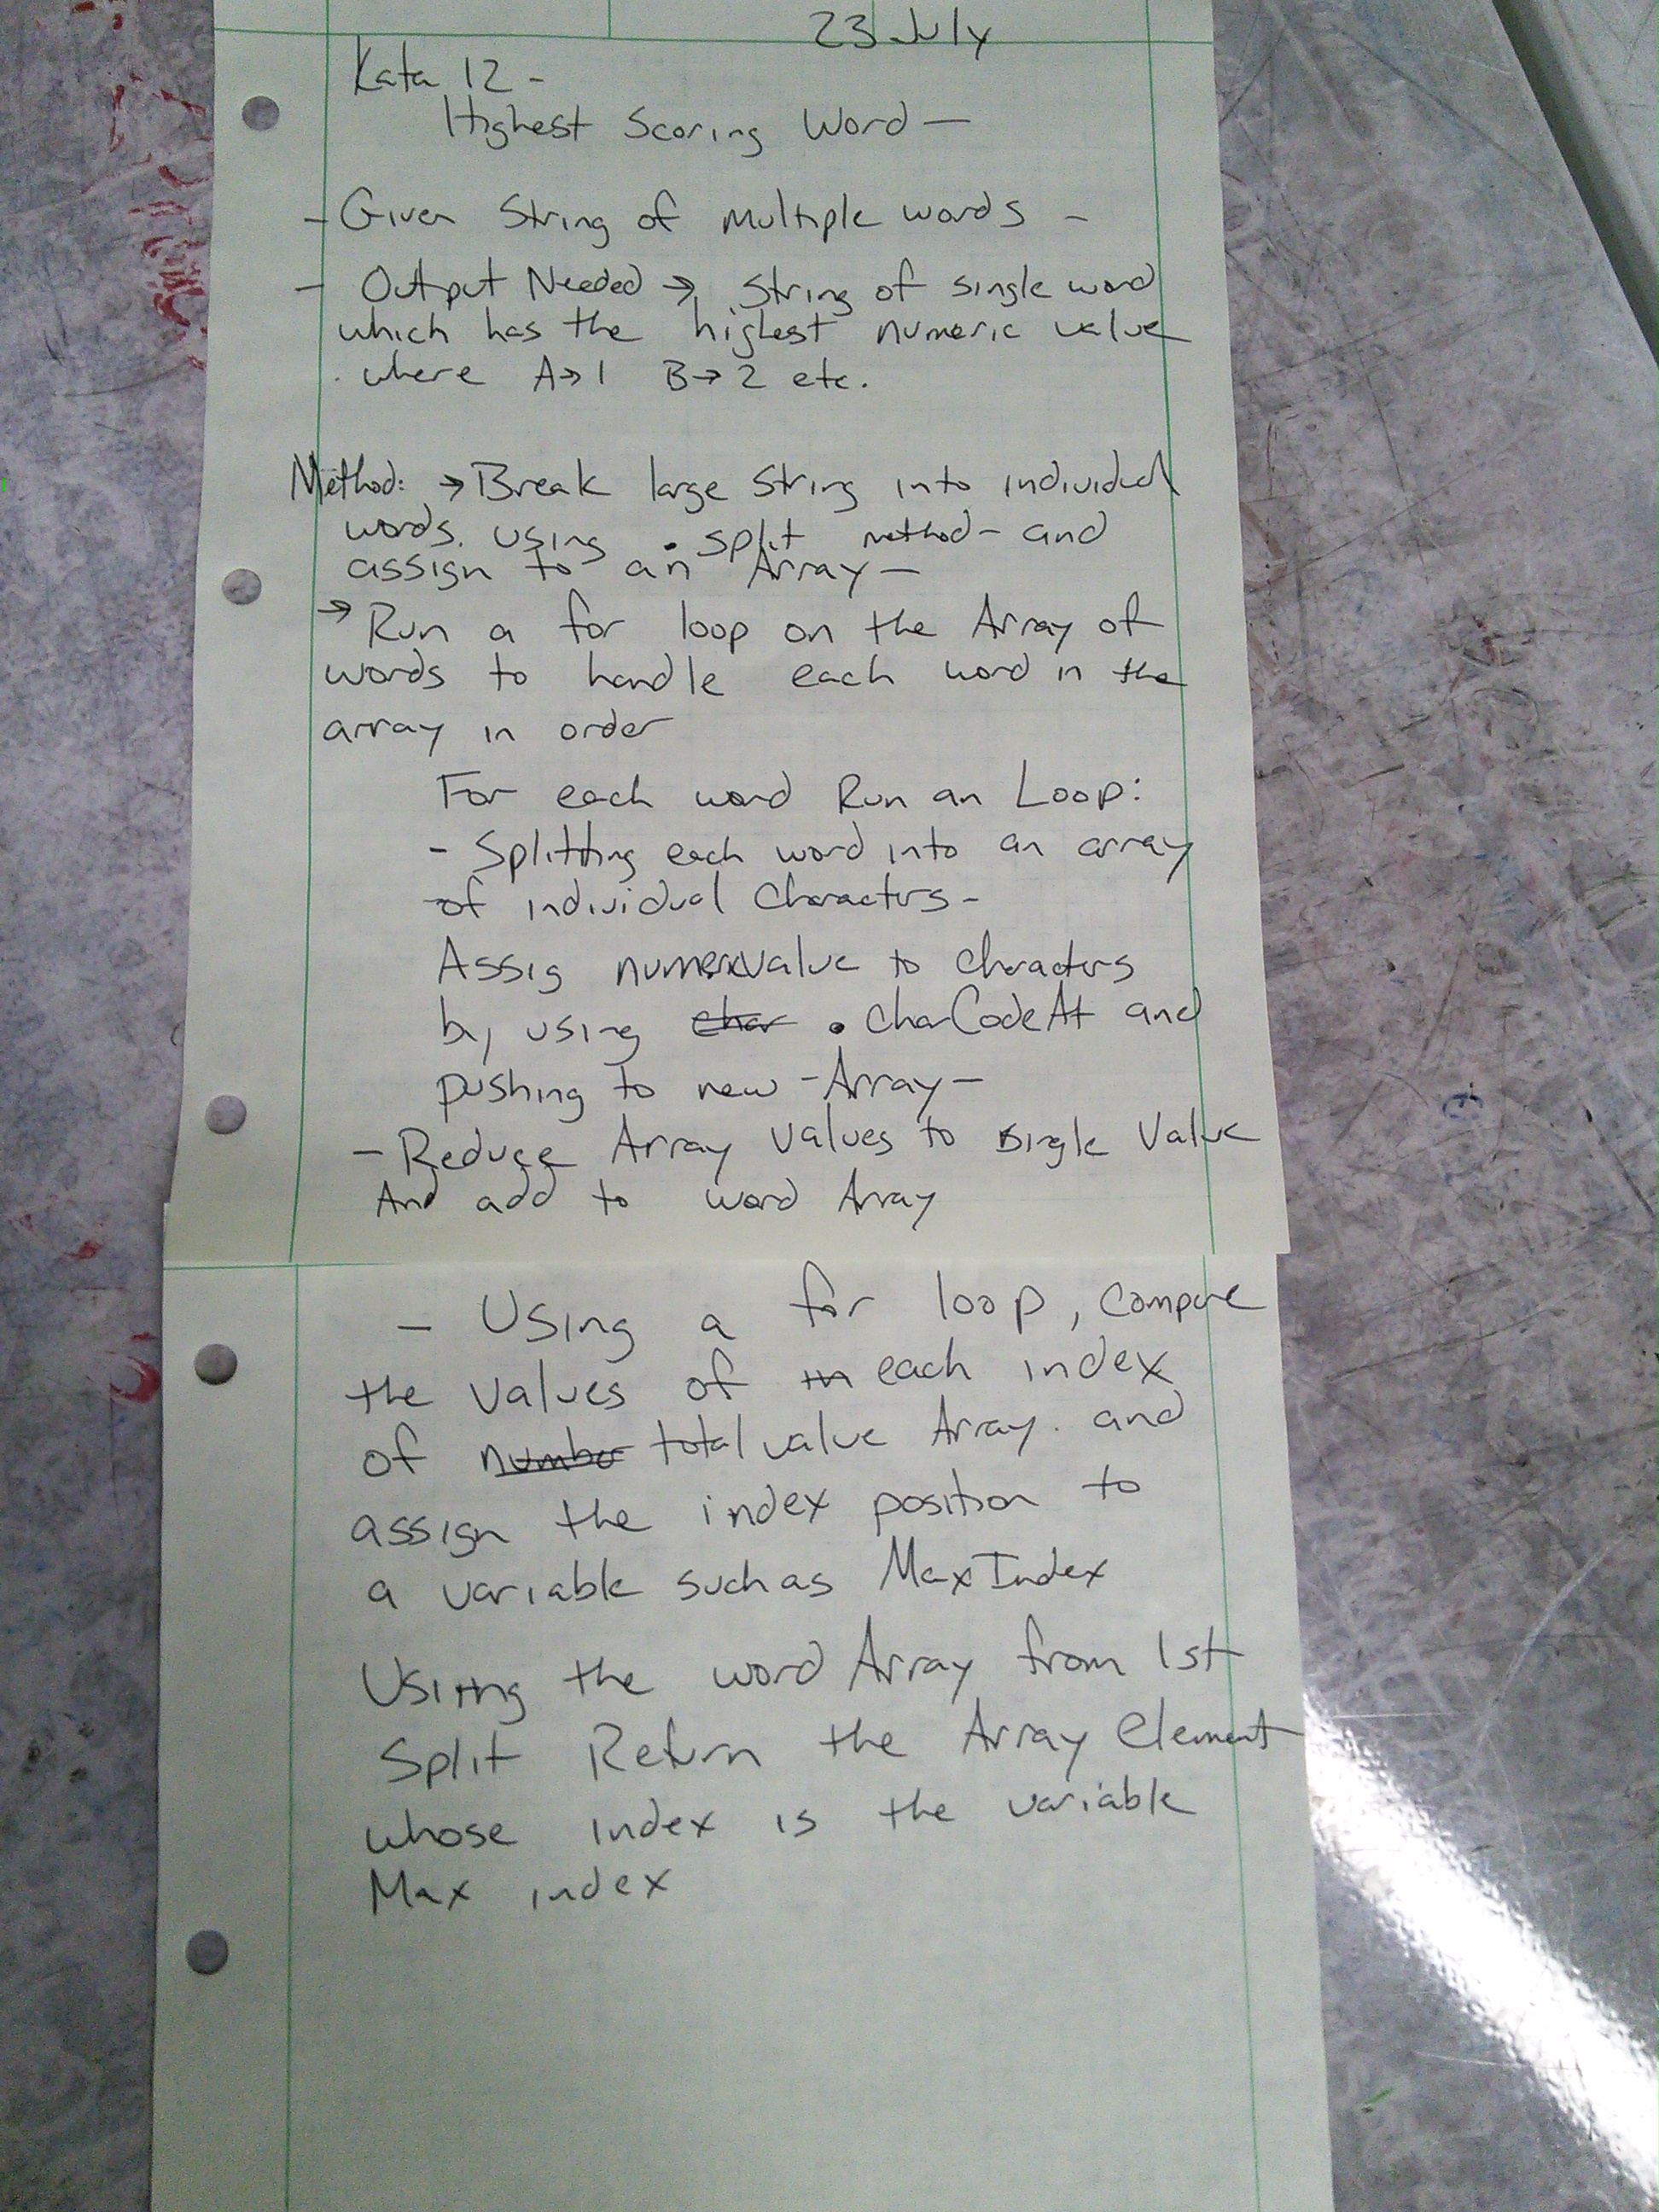 23 July
Kata 12 -
Highest Scoring Word —
- Given String of Multiple words -
- Output Needed → String of single word
which has the highest numeric value
where A→1 B→2 etc.
Method: → Break large String into individual
words. using .split method - and
assign to an Array —
→ Run a for loop on the Array of
words to handle each word in the
array in order
For each word Run an Loop:
- Splitting each word into an array
of individual characters -
Assig numericvalue to characters
by using ~~char~~ .charCodeAt and
pushing to new - Array —
- Reduce Array Values to single Value
And add to word Array
- Using a for loop, compare
the values of ~~in~~ each index
of ~~number~~ total value Array. and
assign the index position to
a variable such as MaxIndex
Using the word Array from 1st
Split Return the Array element
whose index is the variable
Max index